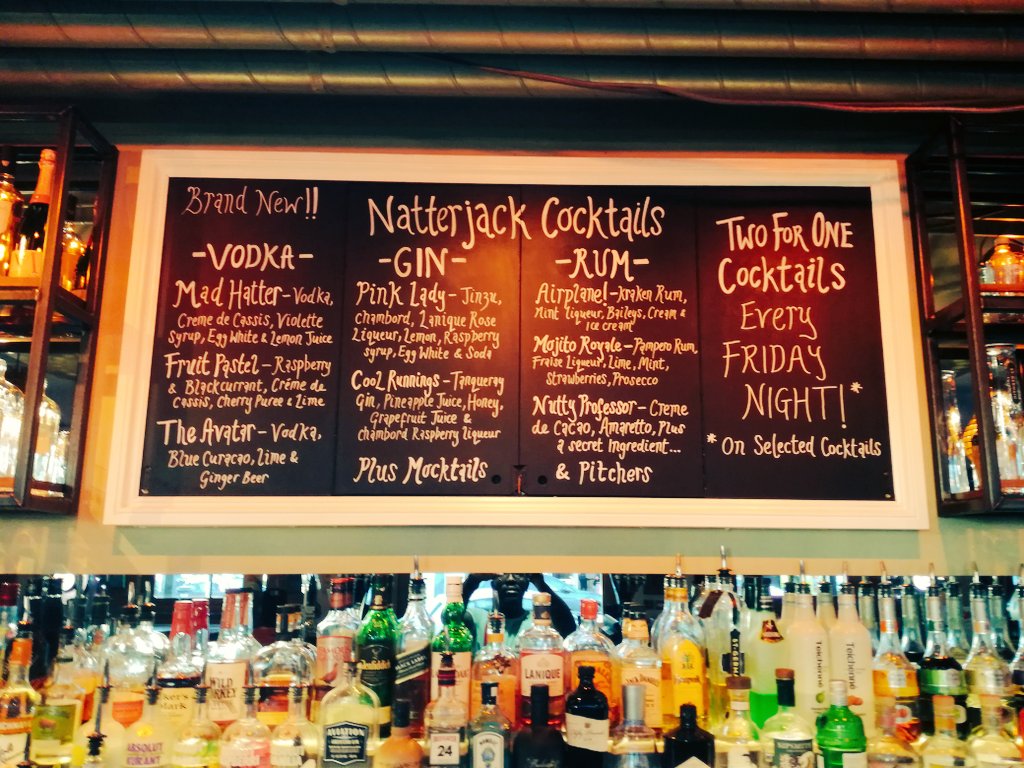 Brand New!!
Natterjack Cocktails
-VODKA-
Mad Hatter - Vodka,
Creme de Cassis, Violette
Syrup, Egg White & Lemon Juice
Fruit Pastel - Raspberry
& Blackcurrant, Créme de
Cassis, Cherry Puree & Lime
The Avatar - Vodka,
Blue Curacao, Lime &
Ginger Beer
-GIN-
Pink Lady - Jinzu,
Chambord, Lanique Rose
Liqueur, Lemon, Raspberry
syrup, Egg White & Soda
Cool Runnings - Tanqueray
Gin, Pineapple Juice, Honey,
Grapefruit Juice &
Chambord Raspberry liqueur
Plus Mocktails
-RUM-
Airplane! - Kraken Rum,
Mint Liqueur, Baileys, Cream &
Ice cream
Mojito Royale - Pampero Rum
Fraise Liqueur, Lime, Mint,
Strawberries, Prosecco
Nutty Professor - Creme
de Cacao, Amaretto, Plus
a secret Ingredient...
& Pitchers
Two For One
Cocktails
Every
FRIDAY
NIGHT!*
*On Selected Cocktails
Glenfiddich
BLACK LABEL
LANIQUE
WILD
TURKEY
ABSOLUT
KURANT
AVIATION
24